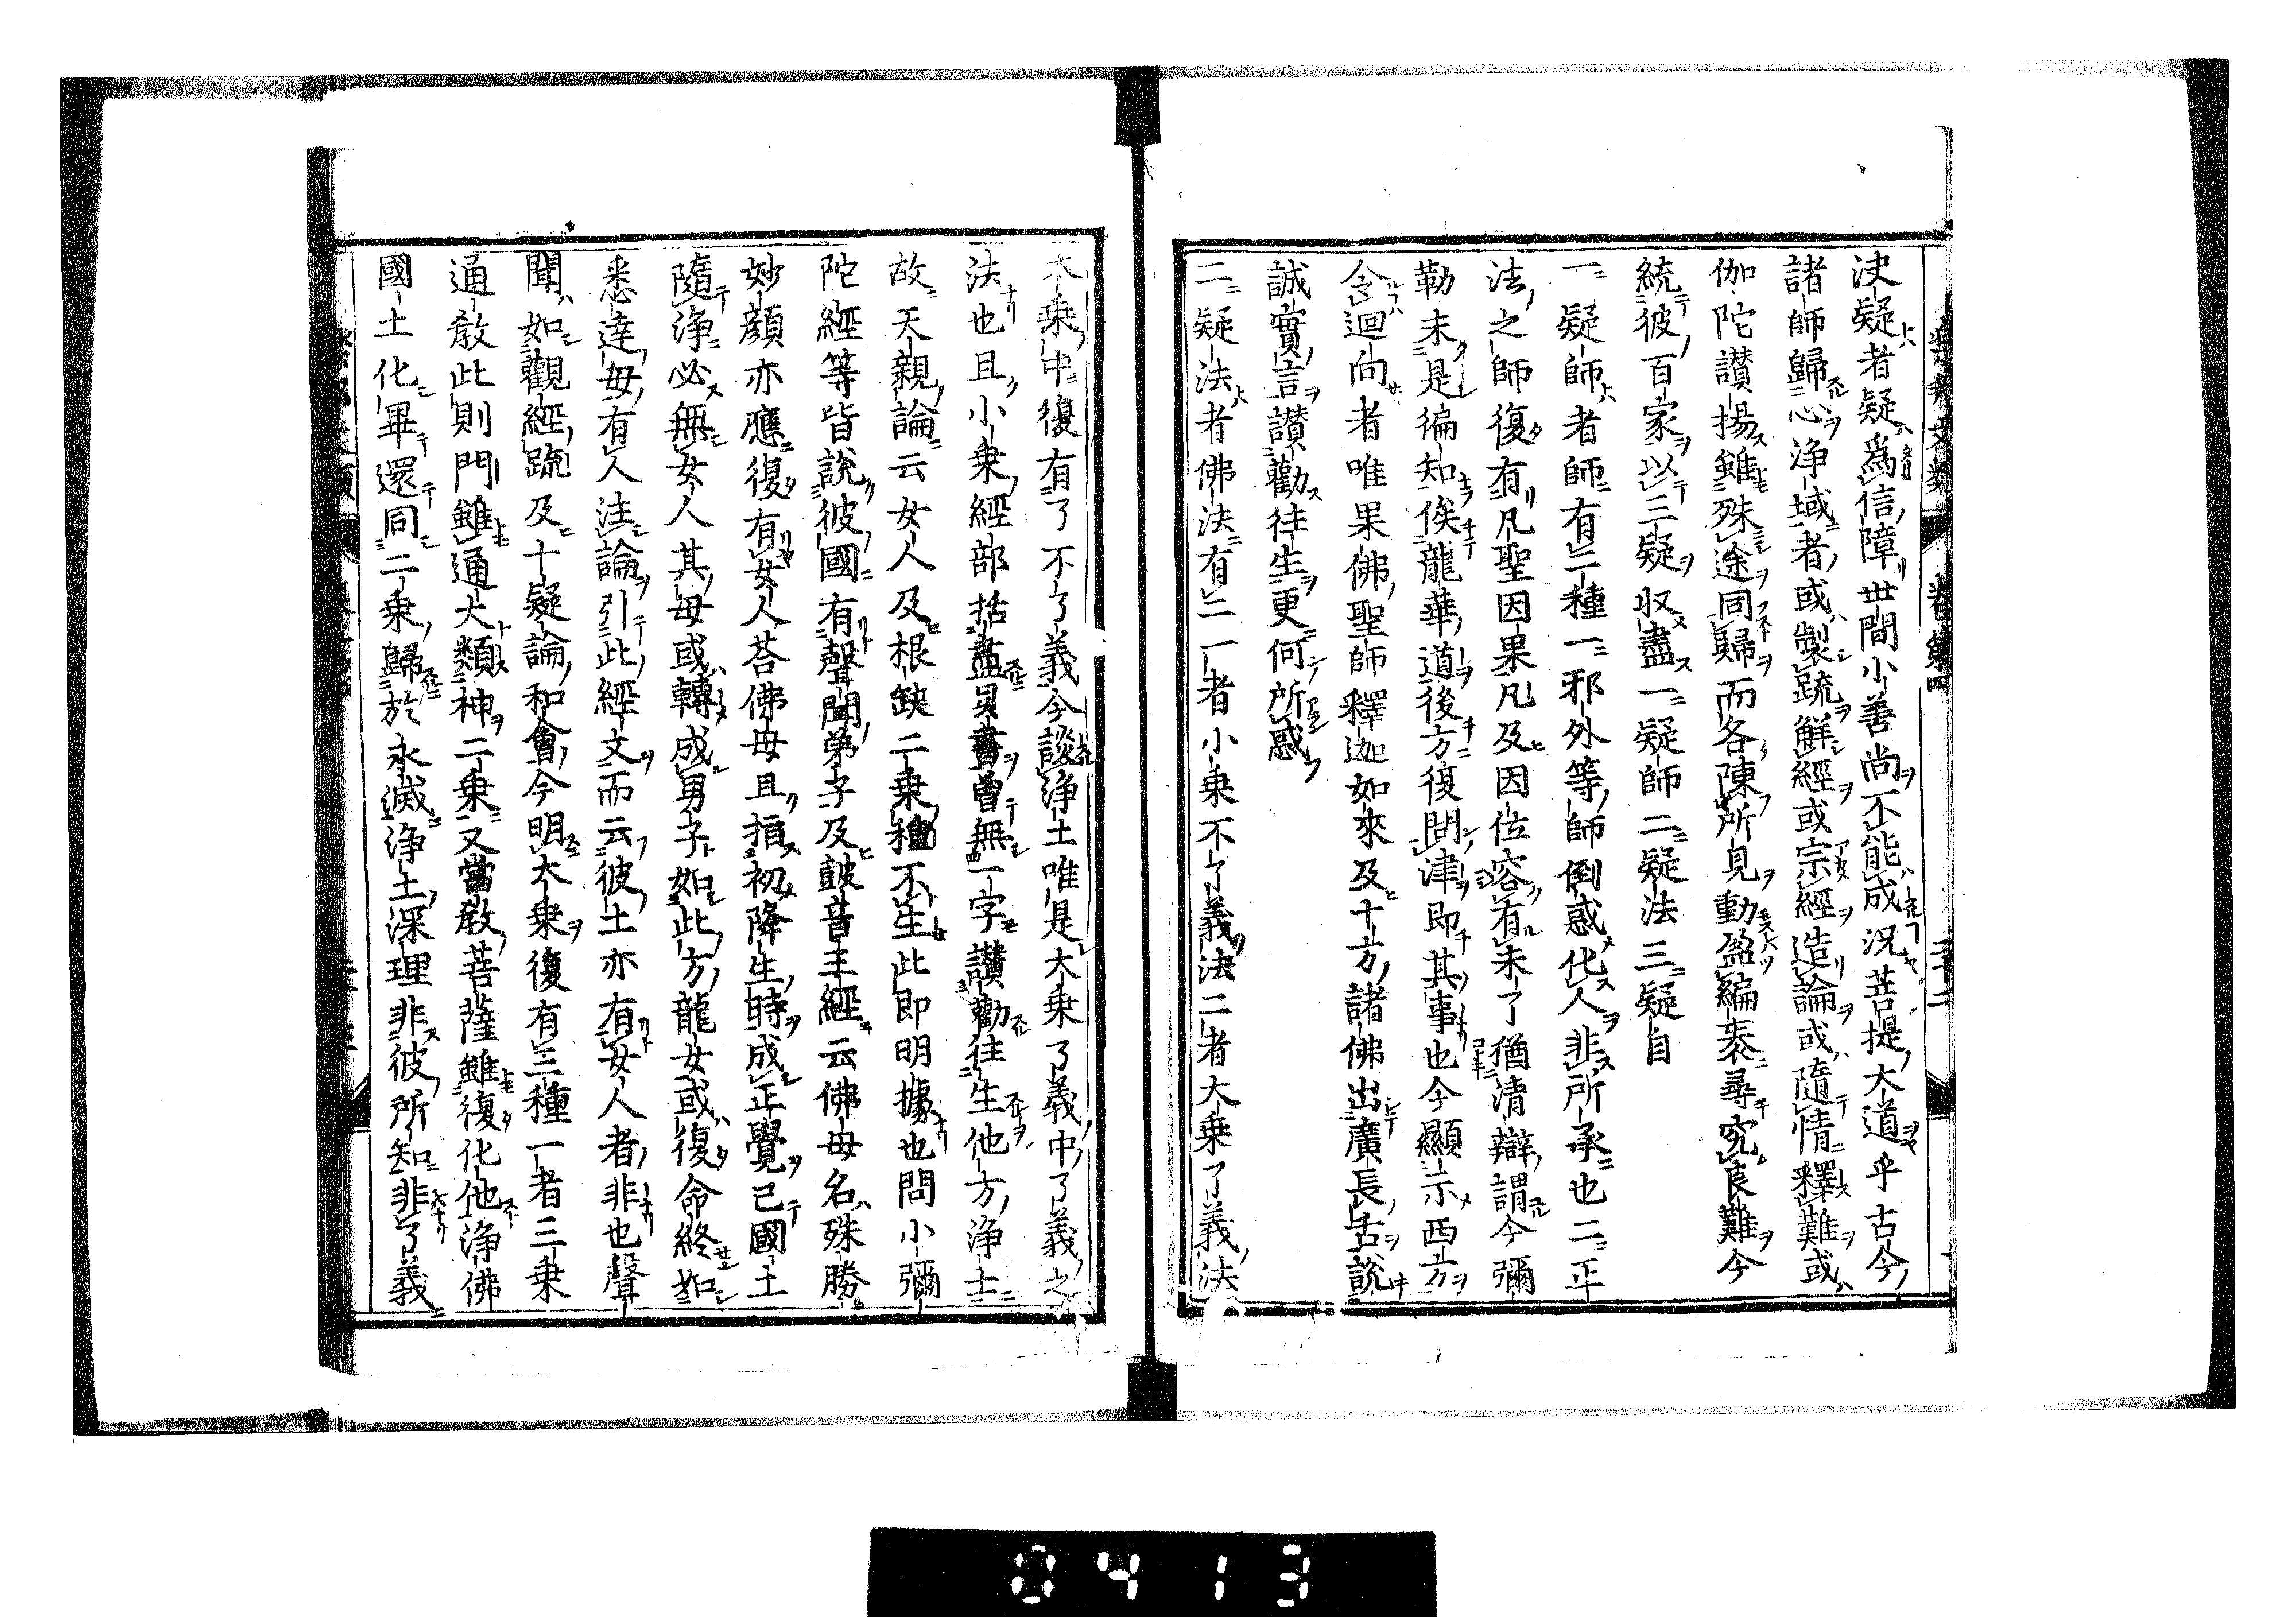 決疑者疑爲信障世間小善尚不能成況菩提大道乎古今
諸師歸心淨域者或製䟽解經或宗經造論或隨情釋難或
伽陀讃揚雖殊途同歸而各陳所見動盈編袠尋究良難今
統彼百家以三疑収盡一疑師二疑法三疑自
一疑師者師有二種一邪外等師倒惑化人非所承也二正
法之師復有凡聖因果凡及因位容有未了猶清辯謂今彌
勒未是徧知俟龍華道後方復問津即其事也今顯示西方
令迴向者唯果佛聖師釋迦如來及十方諸佛出廣長舌說
誠實言讃勸往生更何所惑
二疑法者佛法有二一者小乗不了義法二者大乗了義法
大乗中復有了不了義今談淨土唯是大乗了義中了義之
法也且小乗經部括盡貝書曾無一字讃勸往生他方淨土
故天親論云女人及根缺二乗種不生此即明據也問小彌
陀經等皆說彼國有聲聞弟子及皷音王經云佛母名殊勝
妙顏亦應復有女人荅佛母且指初降生時成正覺已國土
隨淨必無女人其母或轉成男子如此方龍女或復命終如
悉達母有人注論引此經文而云彼土亦有女人者非也聲
聞如觀經䟽及十疑論和會今明大乗復有三種一者三乗
通教此則門雖通大類神二乗又當教菩薩雖復化他淨佛
國土化畢還同二乗歸於永滅淨土深理非彼所知非了義
卷第四
三十二
0413